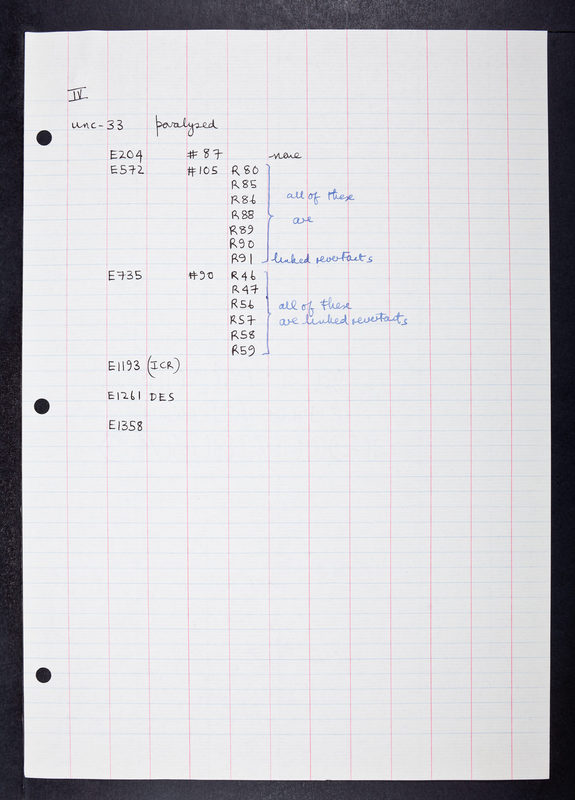 IV
unc-33 paralyzed
E204 # 87 none
E572 # 105 R 80
R85
R86 all of these
R88 are
R89
R90
R91 linked revertants
E735 #90 R46
R47
R56 all of these
R57 are linked revertants
R58
R59
E1193 (ICR)
E1261 DES
E1358